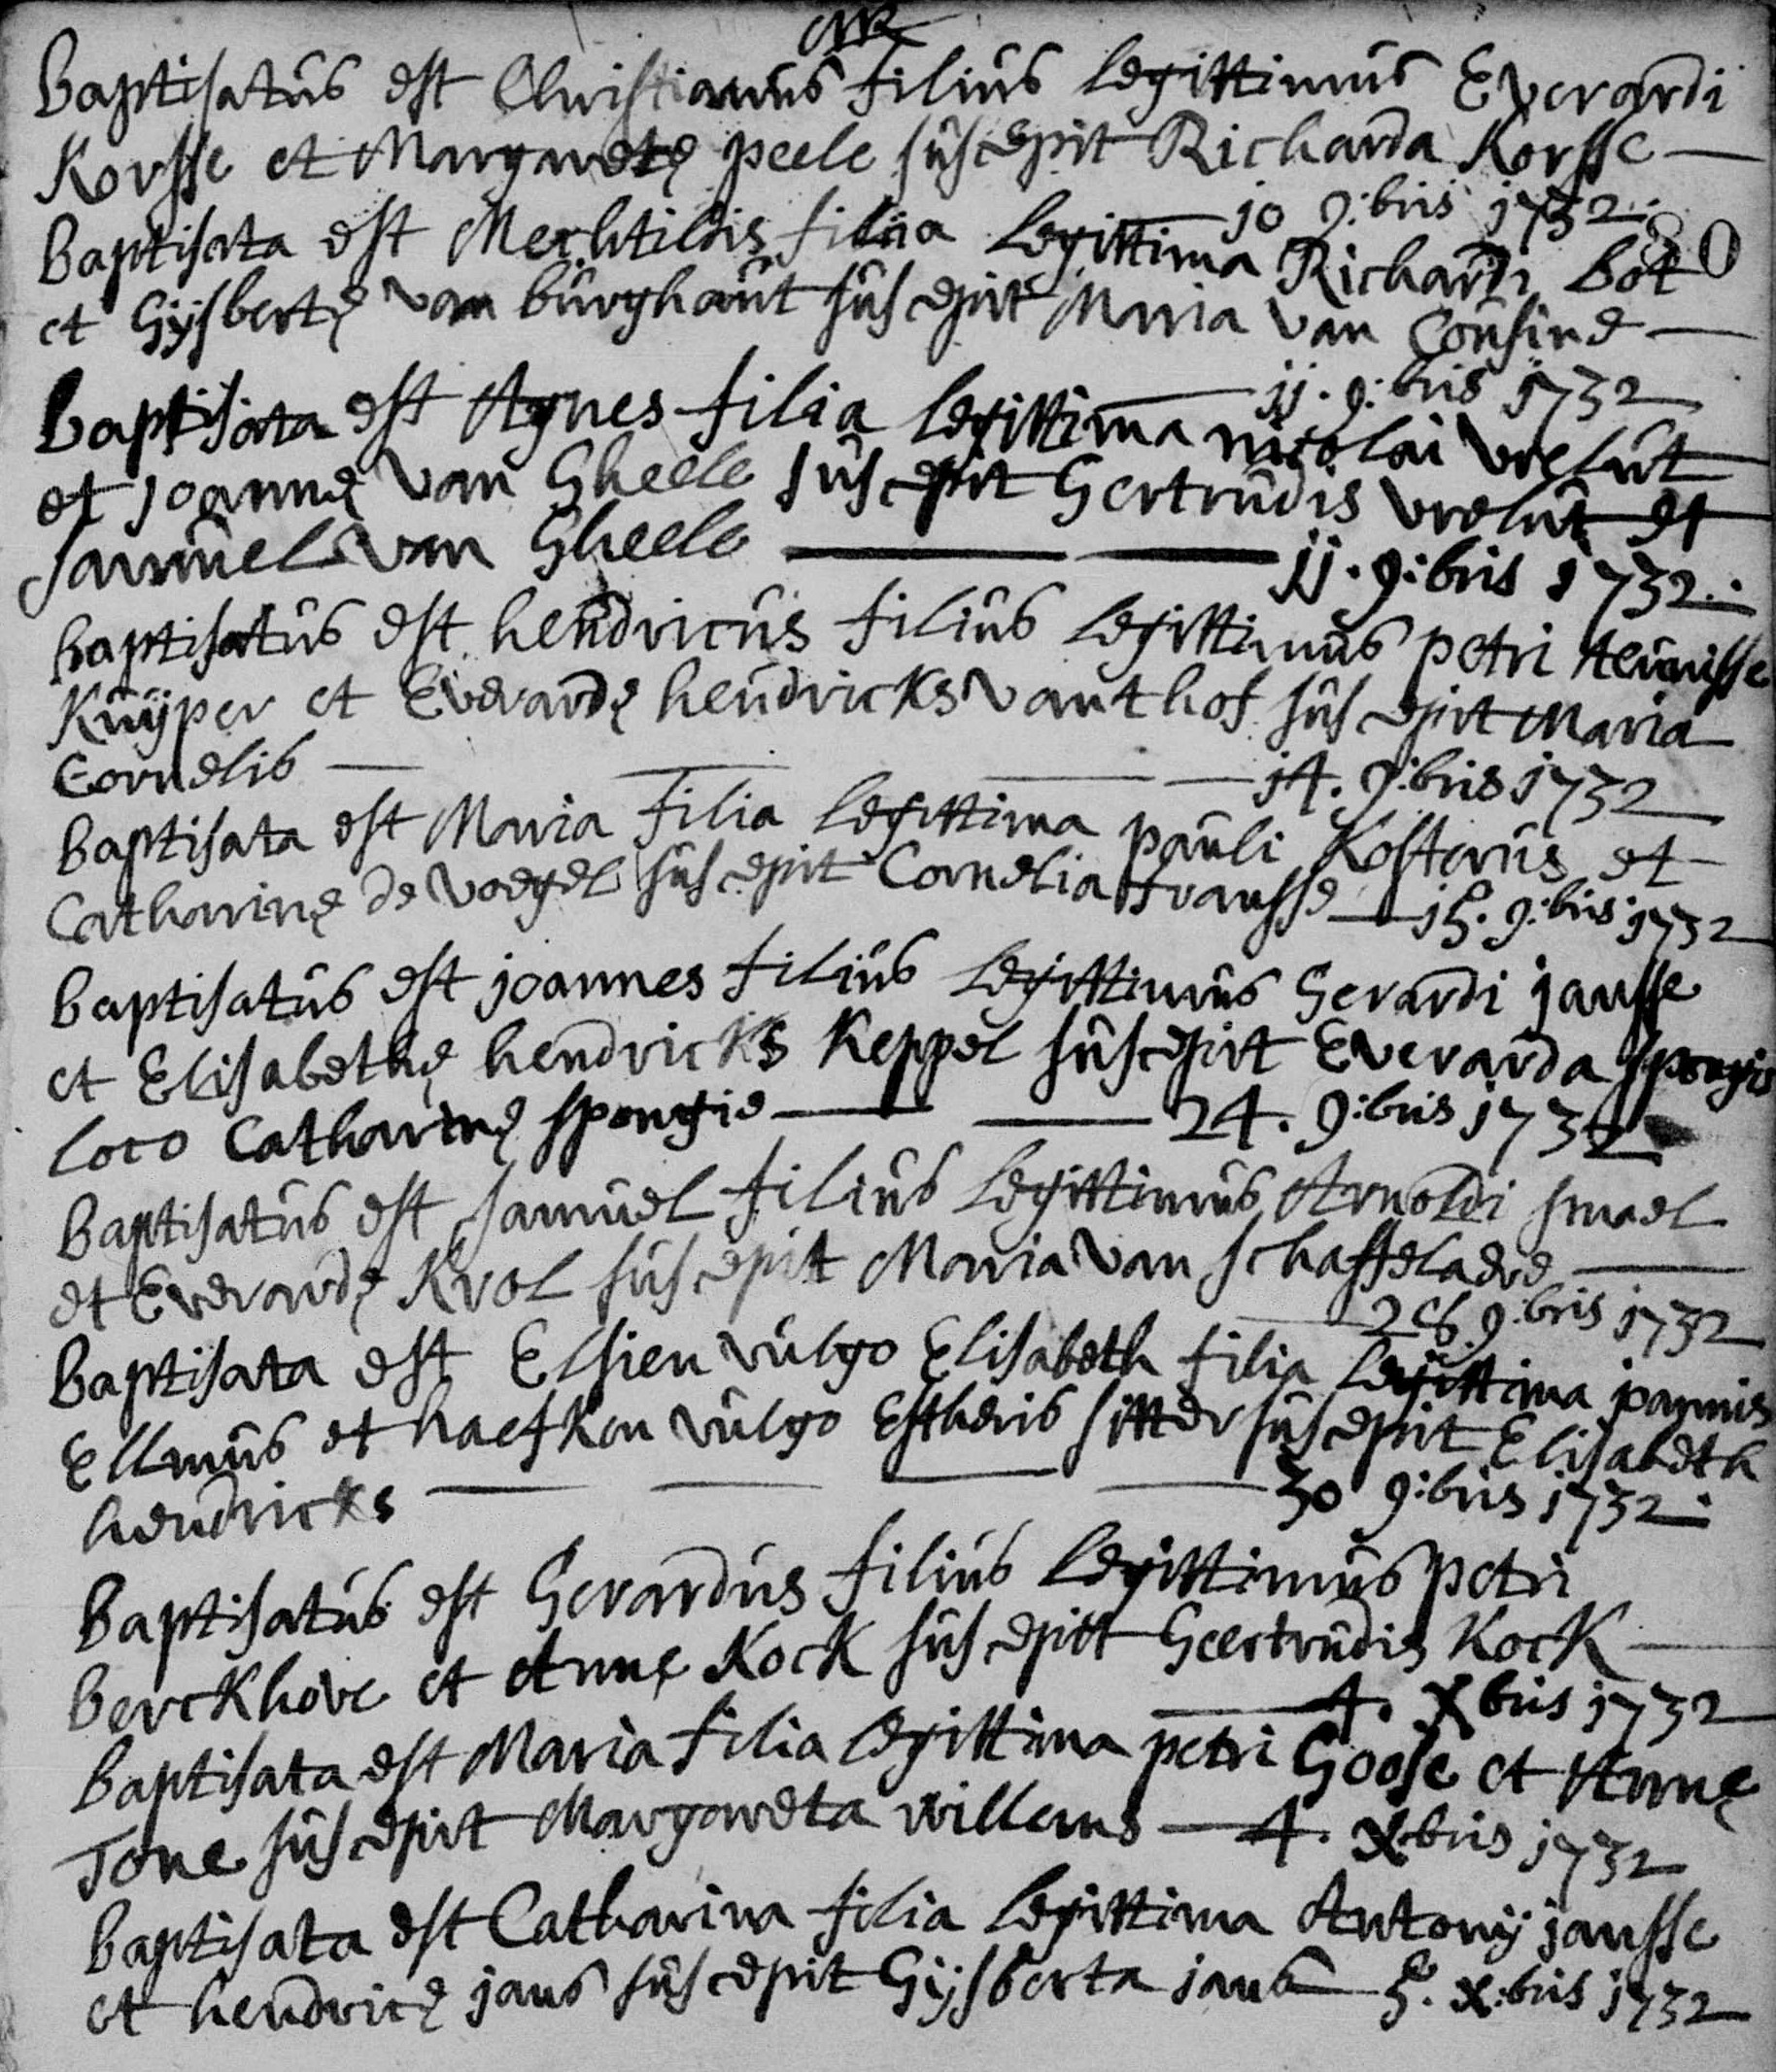 NB
Baptisatus est Christianus filius legittimus Everardi
Korsse et Margaretę peele suscepit Richarda Korsse —
10 9:bris 1732.
80
Baptisata est Mechtildis filia legittima Richardi bot
et Gijsbertę van burghaut suscepit Maria van Cousine —
11. 9:bris 1732
Baptisata est Agnes filia legittima nicolai vrelut
et joannę van Gheele suscepit Gertrudis vrelut et
Samuel van Gheele — — 11. 9:bris 1732.
baptisatus est hendricus filius legittimus petri teunisse
Kuijper et Everardę hendricks vant hof suscepit Maria
Cornelis — — — — 14. 9:bris 1732
baptisata est Maria filia legittima pauli Kosterus et
Catharinę de voegel suscepit Cornelia fransse — 15. 9:bris 1732
baptisatus est joannes filius legittimus Gerardi jansse
et Elisabethę hendricks Keppel suscepit Everarda spongis
loco Catharinę spongie — — 24. 9:bris 1732
baptisatus est samuel filius legittimus Arnoldi smael
et Everardę Krol suscepit Maria van schaffelaere —
28 9:bris 1732
baptisata est Elsien vulgo Elisabeth filia legittima joannis
Ellmus et haefken vulgo Estheris sitter suscepit Elisabeth
hendricks — — — — 30 9:bris 1732.
baptisatus est Gerardus filius legittimus petri
berckhove et Annę Kock suscepitt Geertrudis Kock —
4. Xbris 1732
baptisata est Maria filia legittima petri Goose et Annę
Tone suscepit Margareta willems — 4. X:bris 1732
baptisata est Catharina filia legittima Antonij jansse
et hendricę jans suscepit Gijsberta jans — 5. x:bris 1732